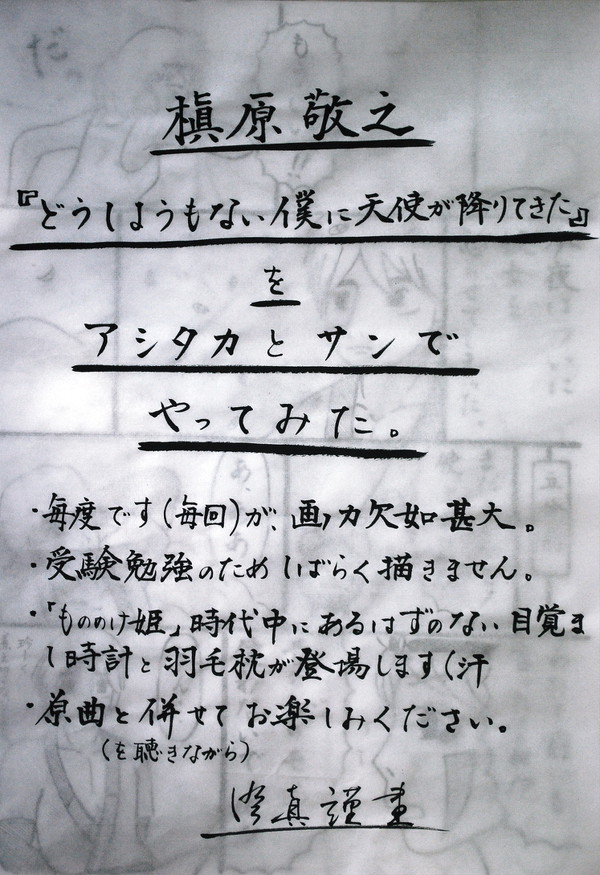 槇原敬之
『どうしようもない僕に天使が降りてきた』
を
アシタカとサンで
やってみた。
・毎度です(毎回)が、画力欠如甚大。
・受験勉強のためしばらく描きません。
・「もののけ姫」時代中にあるはずのない目覚ま
し時計と羽毛枕が登場します(汗
・原曲と併せてお楽しみください。
(を聴きながら)
真謹画